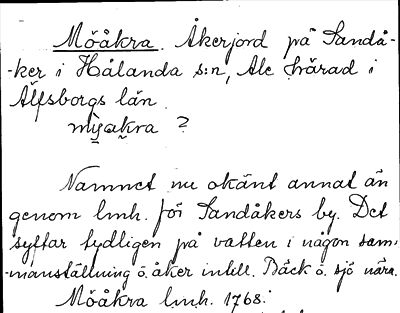 Möåkra. Åkerjord på Sandå-
-ker i Hålanda s:n, Ale härad i
Älfsborgs län.
mi̯sakra ?
Namnet nu okänt annat än
genom lmh. för Sandåkers by. Det
syftar tydligen på vatten i någon sam-
-manställning o. åker intill. Bäck o. sjö nära.
Möåkra lmh. 1768.